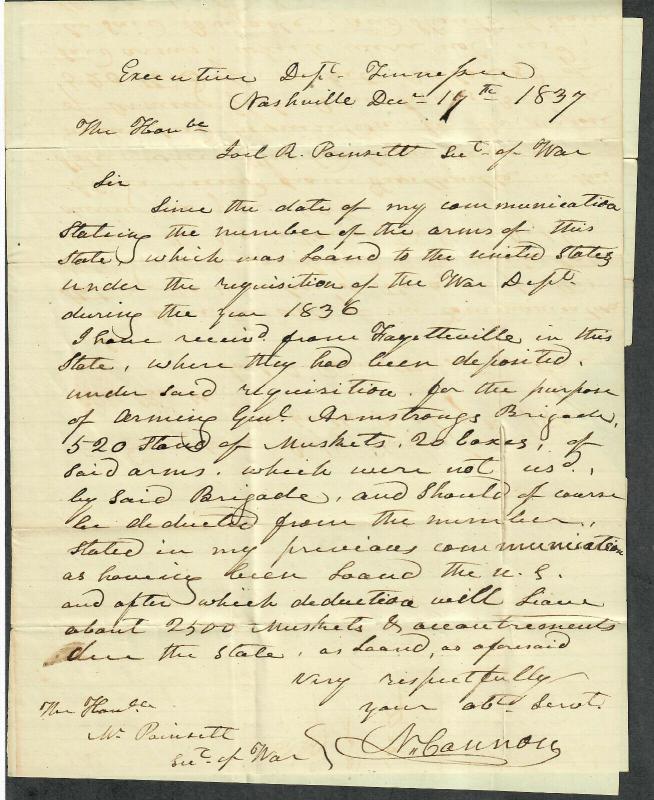 Executive Dept. Tennessee
Nashville Decr 17th 1837
The Honble
Joel R. Poinsett Secty of War
Sir
Since the date of my communication
Stating the number of the arms of this
State, which was loand to the united States
under the requisition of the War Dept.
during the year 1836
I have receivd. from Fayetteville in this
State, where they had been deposited.
under said requisition. for the purpose
of Arming Genl. Armstrongs Brigade,
520 Stand of Muskets. 20 boxes, of
said arms. which were not usd.,
by said Brigade, and should of course
be deducted from the number,
stated in my previous communication
as having been loand the U.S.
and after which deduction will leave
about 2500 Muskets & accoutrements
due the State. as loand, as aforesaid
very respectfully
your obt. Servt.
N. Cannon
The Honble
Mr Poinsett
Secty of War